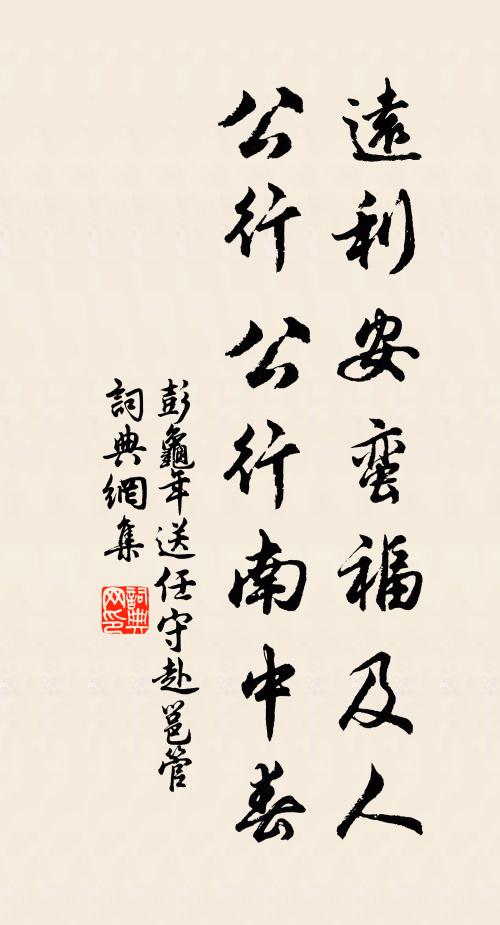 遠利安蛮福及人
公行公行南中春
彭龜年送任守赴邕管
詞典網集
詞典
网印